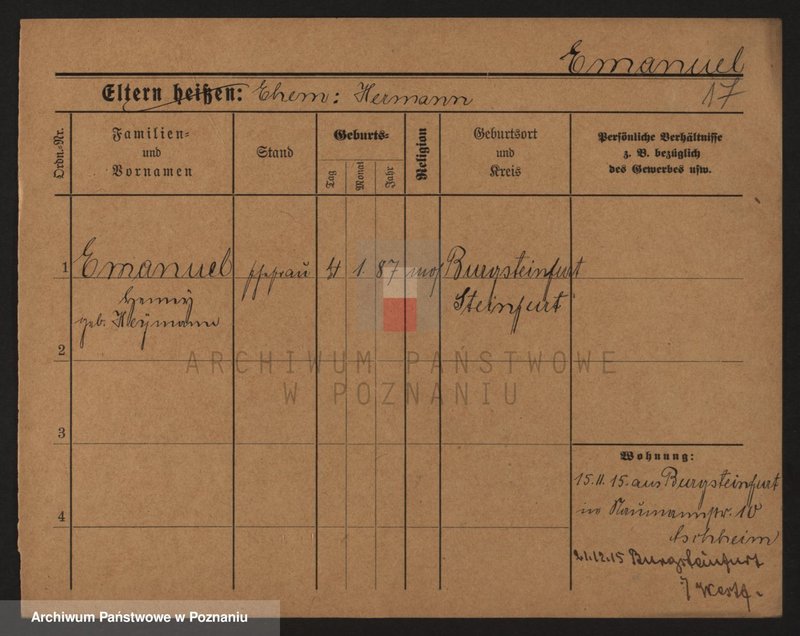 Emanuel
17
Eltern heißen: Ehem: Hermann
Ordn.-Nr.
Familien-
und
Vornamen
Stand
Geburts-
Tag
Monat
Jahr
Religion
Geburtsort
und
Kreis
Persönliche Verhältnisse
z. B. bezüglich
des Gewerbes usw.
1 Emanuel Ehefrau 4 1. 87 mos Burgsteinfurt
Henny Steinfurt
geb. Heymann
2
ARCHIWUM PAŃSTWOWE
W POZNANIU
3
Wohnung:
15.11.15. aus Burgsteinfurt
in Naumannstr. 10
4
21.12.15 Burgsteinfurt
i/ Westf.
Archiwum Państwowe w Poznaniu